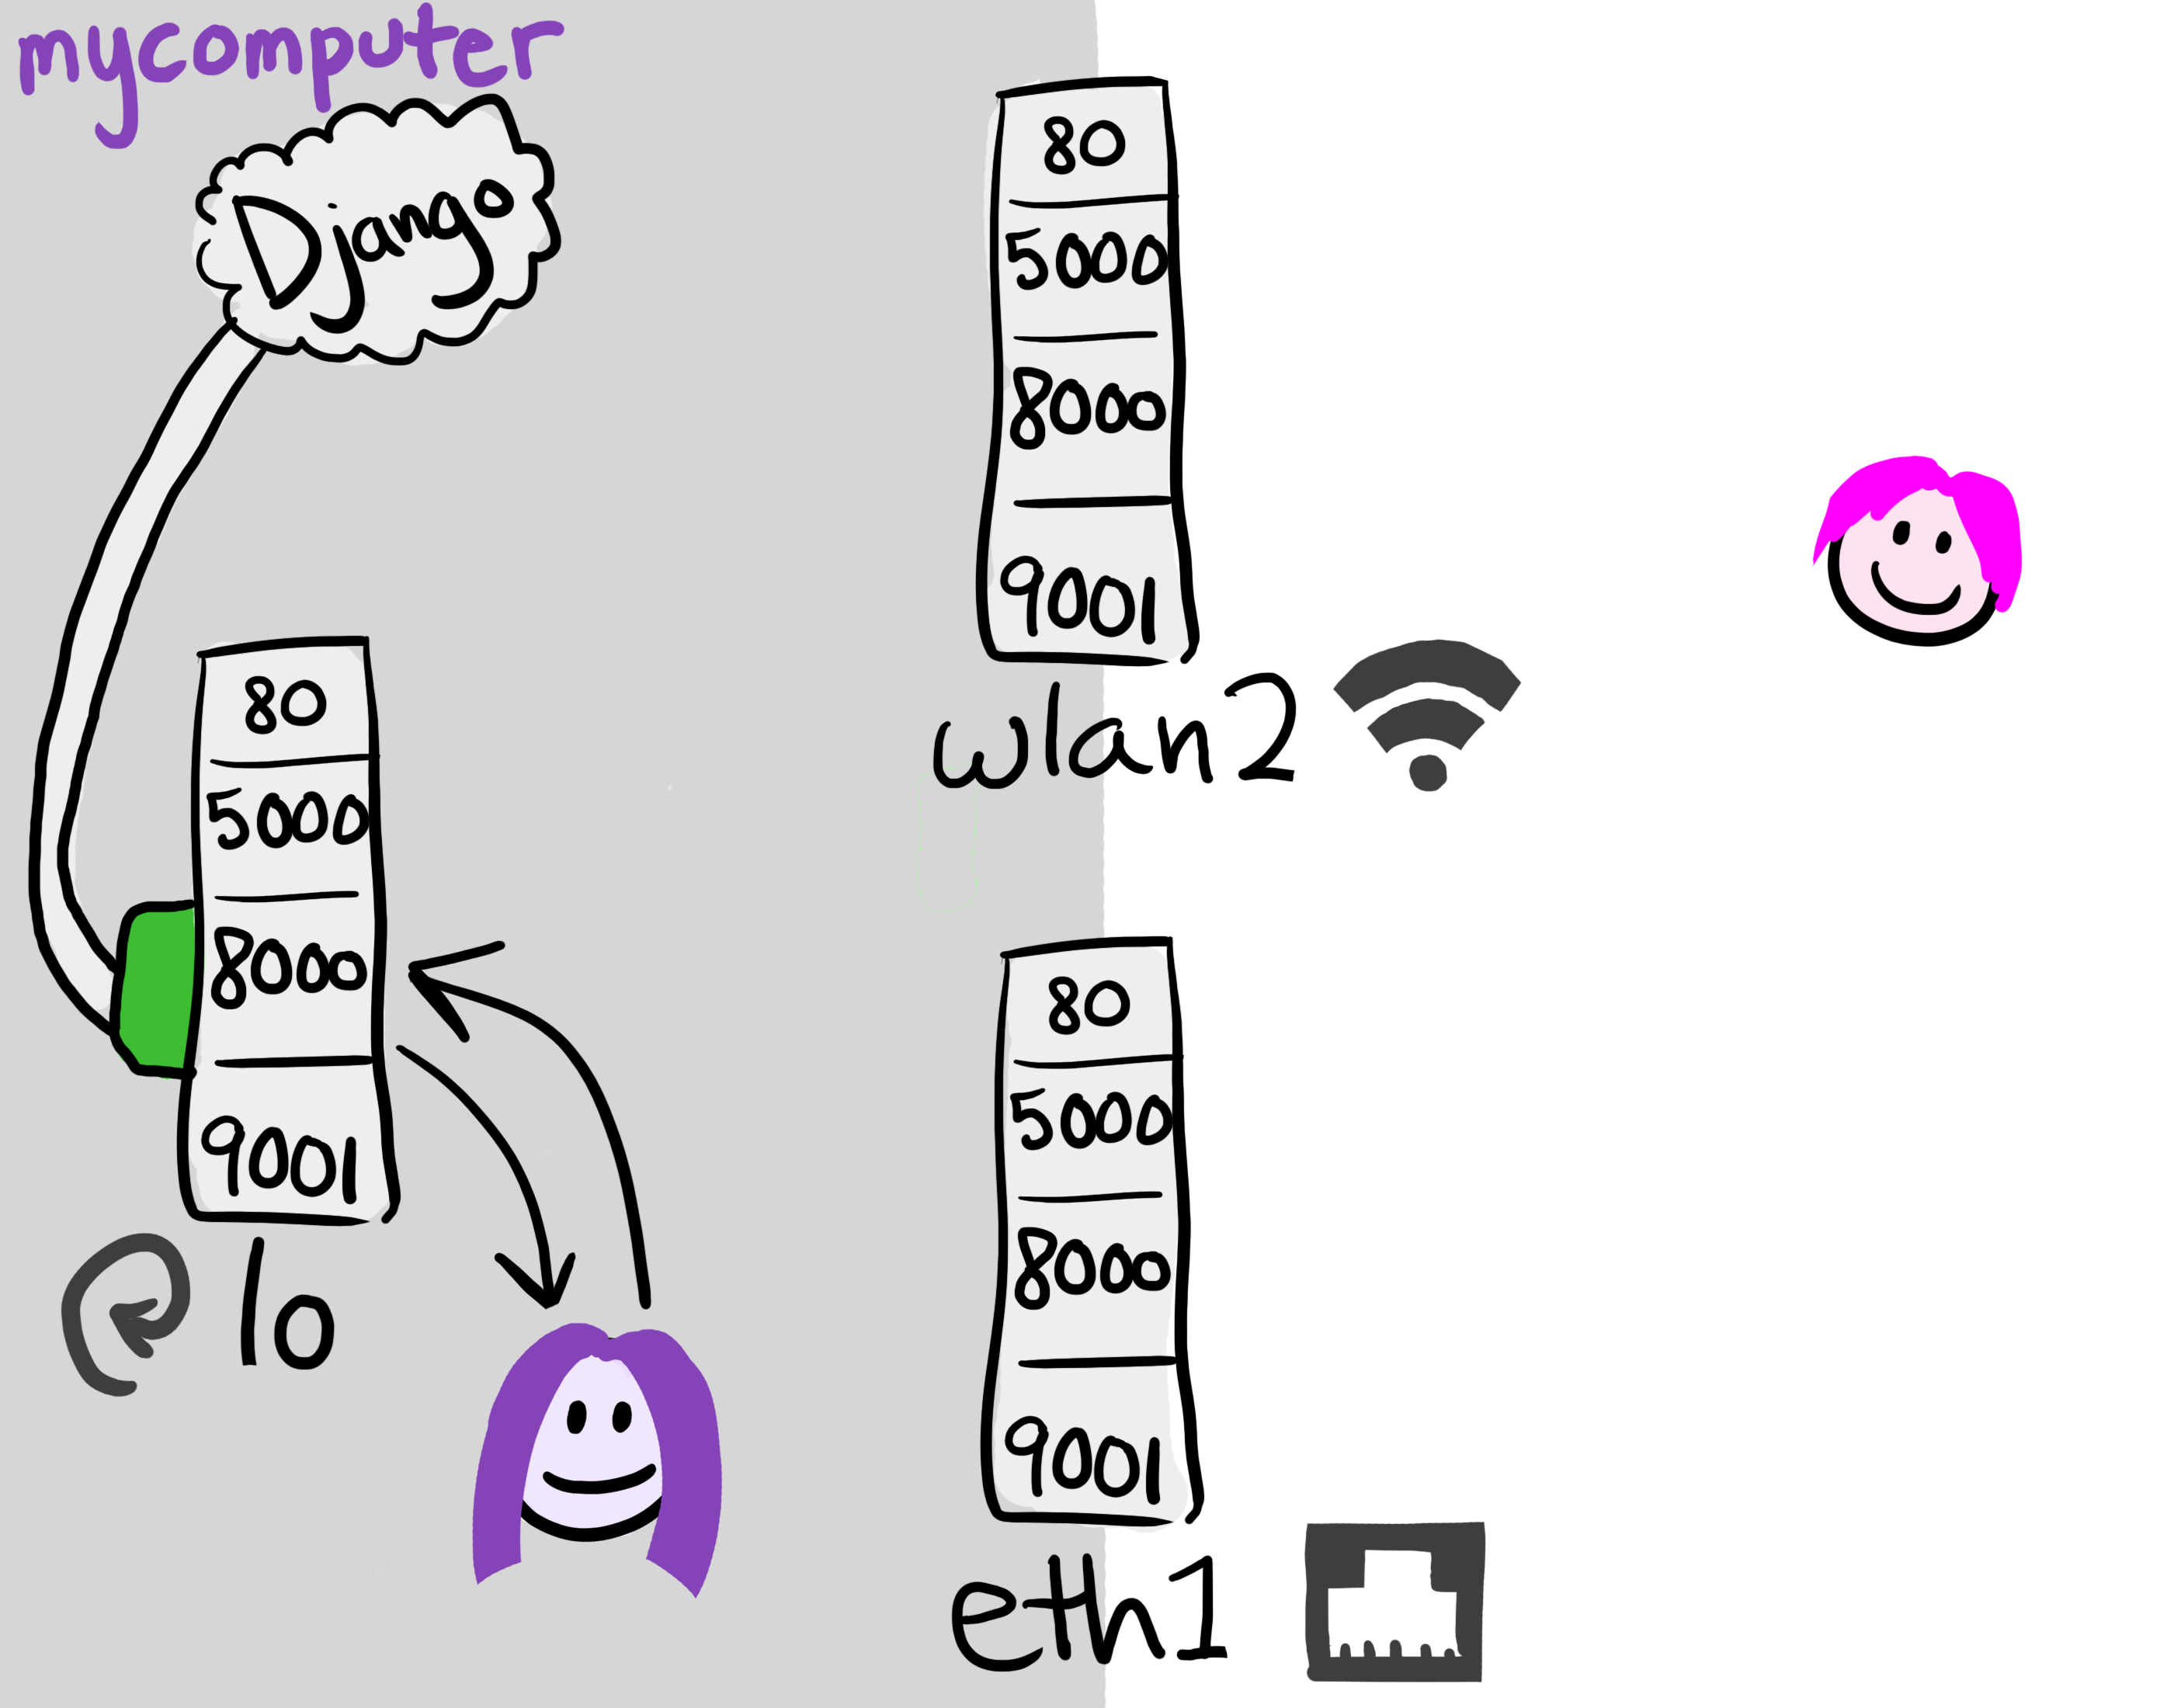 mycomputer
Django
80
5000
8000
9001
lo
80
5000
8000
9001
wlan2
80
5000
8000
9001
eth1